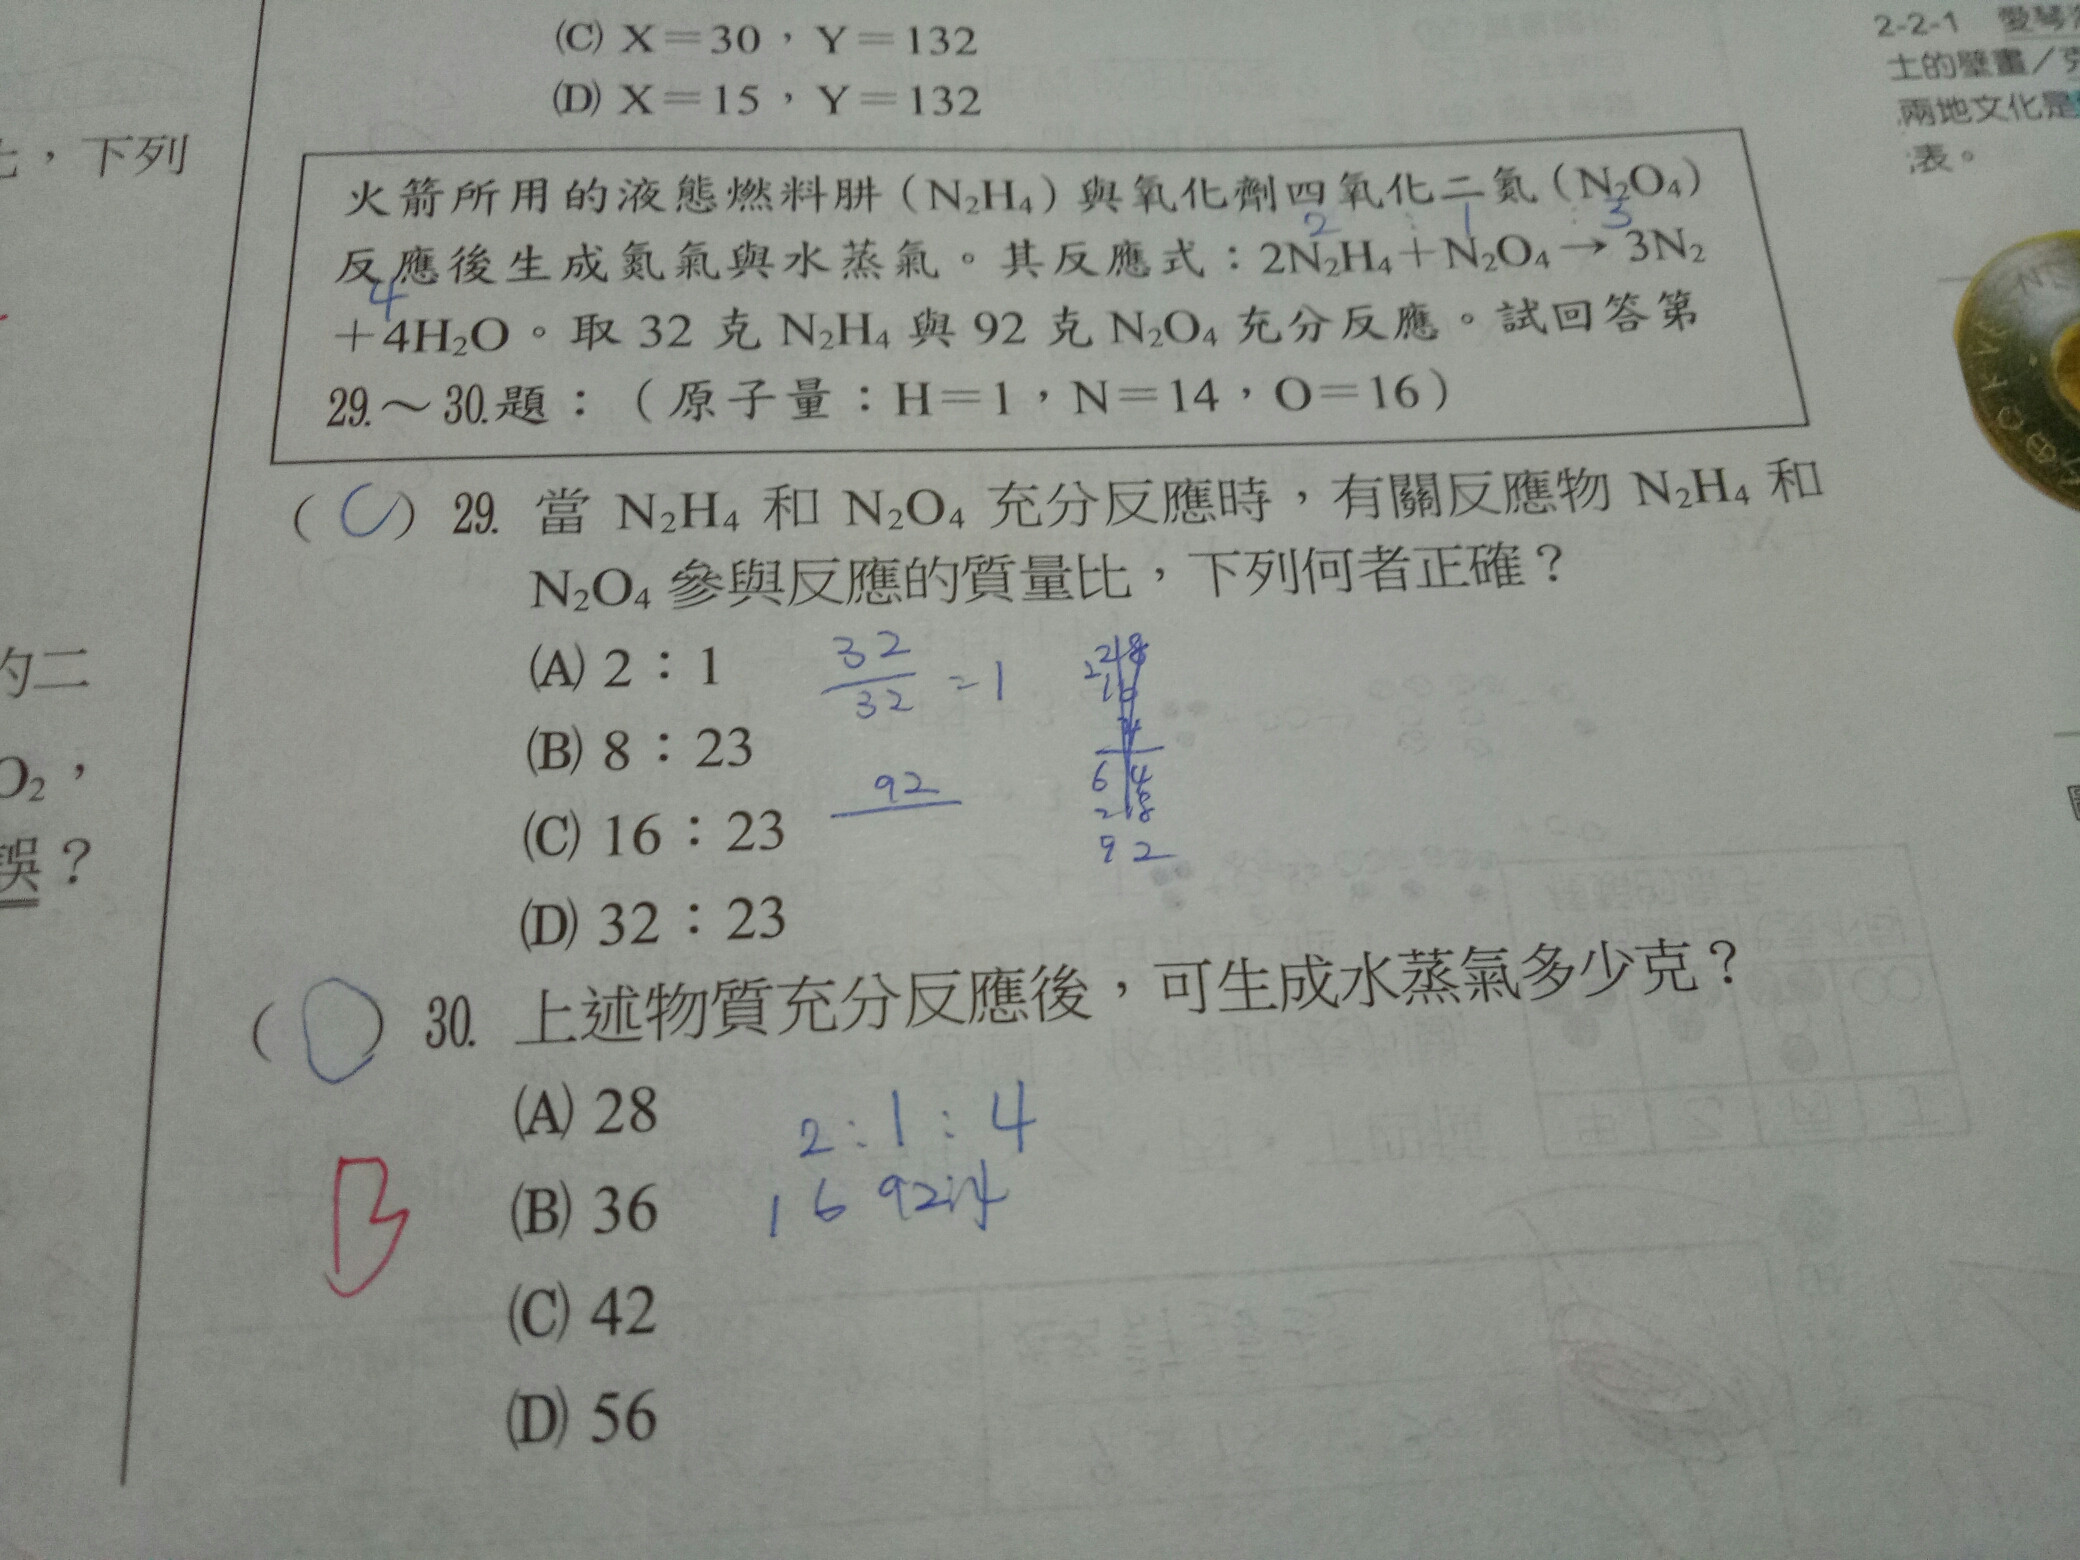 (C) X=30，Y=132
(D) X=15，Y=132
，下列
火箭所用的液態燃料肼（N₂H₄）與氧化劑四氧化二氮（N₂O₄）
2 1 3
反應後生成氮氣與水蒸氣。其反應式：2N₂H₄+N₂O₄→3N₂
4
+4H₂O。取 32 克 N₂H₄ 與 92 克 N₂O₄ 充分反應。試回答第
29.～30.題：（原子量：H=1，N=14，O=16）
( C ) 29. 當 N₂H₄ 和 N₂O₄ 充分反應時，有關反應物 N₂H₄ 和
N₂O₄ 參與反應的質量比，下列何者正確？
(A) 2：1
32
32
=1
(B) 8：23
92
(C) 16：23
(D) 32：23
6 4
28
92
( D ) 30. 上述物質充分反應後，可生成水蒸氣多少克？
(A) 28
2:1:4
(B) 36
16 92
B
(C) 42
(D) 56
的二
O₂，
誤？
2-2-1 愛琴
士的壁畫／
兩地文化是
表。